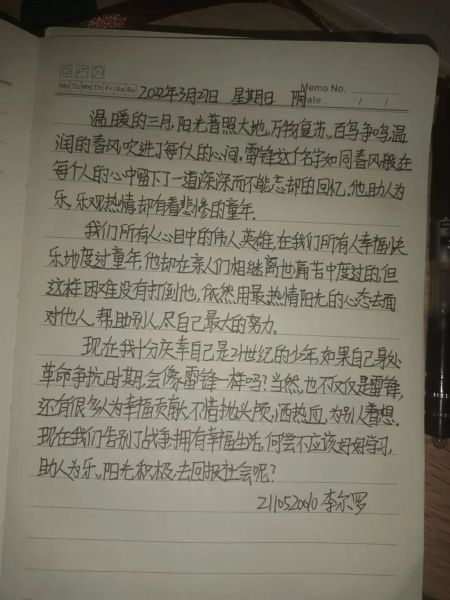 Memo No.
Mo Tu We Th Fr Sa Su
Date: / /
2022年3月27日 星期日 阴
温暖的三月,阳光普照大地,万物复苏、百鸟争鸣,温
润的春风吹进了每个人的心间,雷锋这个名字如同春风般在
每个人的心中留下了一道深深而不能忘却的回忆,他助人为
乐,乐观热情却有着悲惨的童年。
我们所有人心目中的伟人英雄,在我们所有人幸福快
乐地度过童年,他却在亲人们相继离世痛苦中度过的,但
这样困难没有打倒他,依然用最热情阳光的心态去面
对他人,帮助别人,尽自己最大的努力。
现在我十分庆幸自己是21世纪的少年,如果自己身处
革命争抗时期,会像雷锋一样吗?当然,也不仅仅是雷锋,
还有很多人为幸福贡献,不惜抛头颅,洒热血,为别人着想。
现在我们告别了战争,拥有幸福生活,何尝不应该好好学习,
助人为乐、阳光积极,去回报社会呢?
211052010 李尔罗